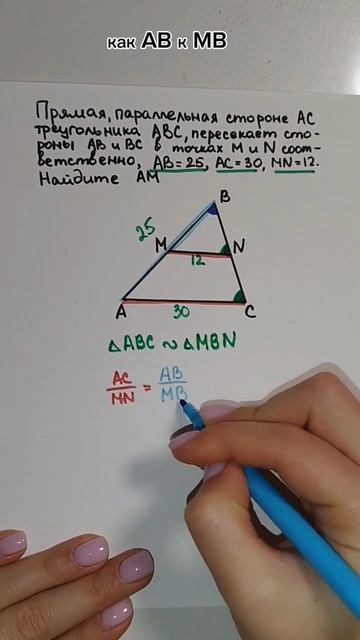 как AB к MB
Прямая, параллельная стороне AC
треугольника ABC, пересекает сто-
роны AB и BC в точках M и N соот-
ветственно, AB=25, AC=30, MN=12.
Найдите AM
B
25
M
N
12
A
30
C
△ABC ~ △MBN
AC/MN = AB/MB